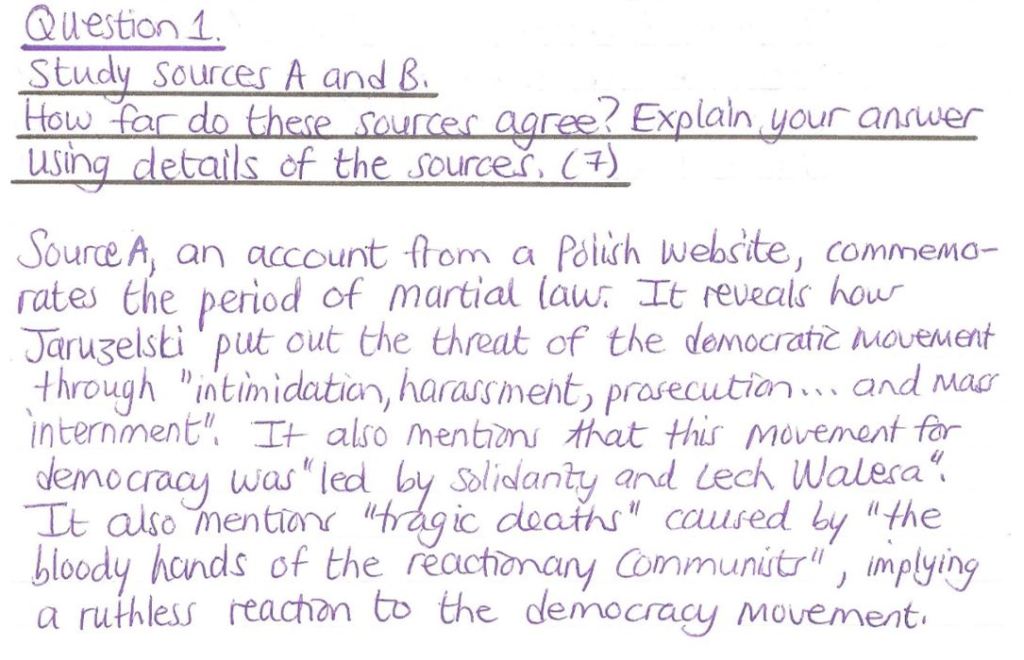 Question 1.
Study sources A and B.
How far do these sources agree? Explain your answer
using details of the sources. (7)
Source A, an account from a Polish website, commemo-
rates the period of martial law. It reveals how
Jaruzelski put out the threat of the democratic movement
through "intimidation, harassment, prosecution... and mass
internment". It also mentions that this movement for
democracy was "led by Solidarity and Lech Walesa".
It also mentions "tragic deaths" caused by "the
bloody hands of the reactionary Communists", implying
a ruthless reaction to the democracy movement.